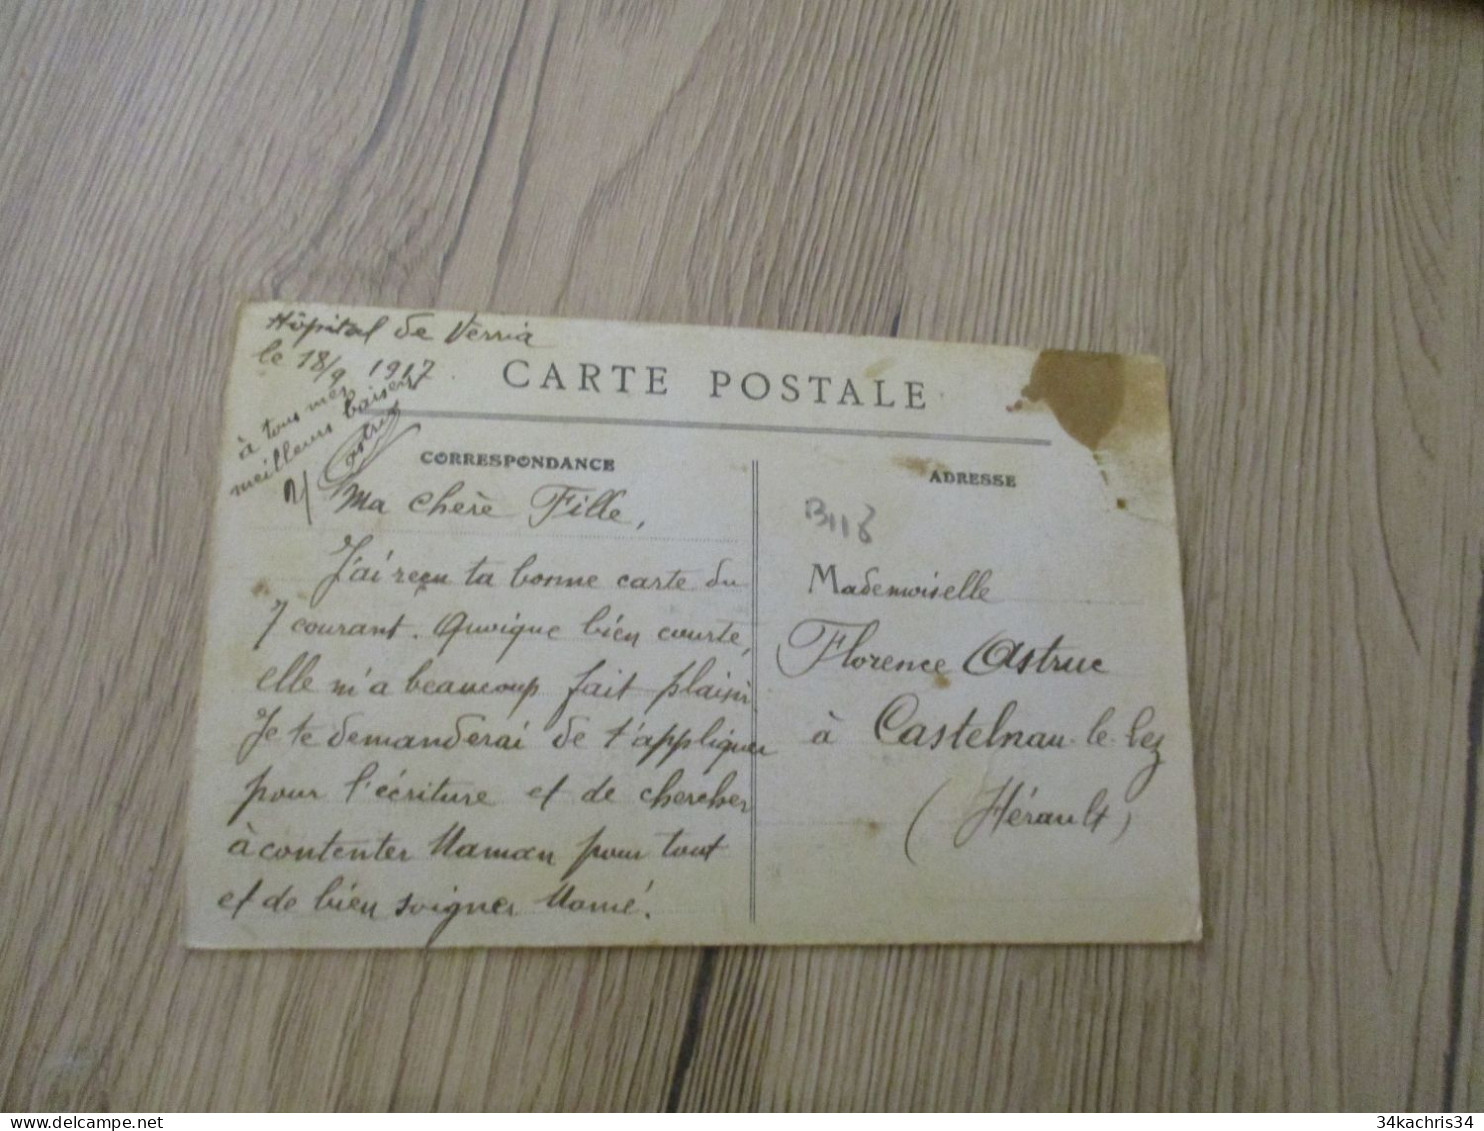 Hôpital de Verria
le 18/9 1917
CARTE POSTALE
à tous mes
meilleurs baisers
Astruc
CORRESPONDANCE
ADRESSE
2/
Ma chère Fille,
J'ai reçu ta bonne carte du
7 courant. Quoique bien courte,
elle m'a beaucoup fait plaisir.
Je te demanderai de t'appliquer
pour l'écriture et de chercher
à contenter Maman pour tout
et de bien soigner Mamé.
Mademoiselle
Florence Astruc
à Castelnau-le-Lez
(Hérault)
34kachris34